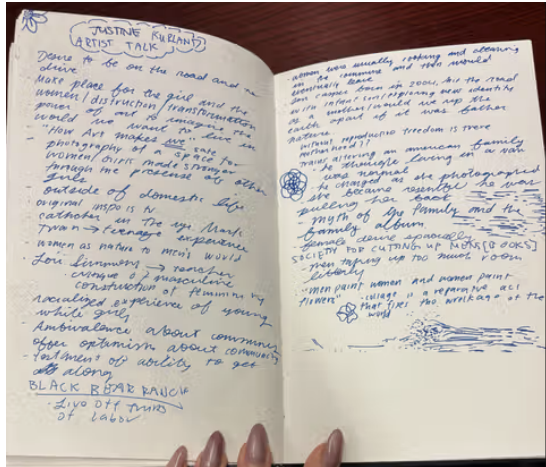 JUSTINE KURLAND
ARTIST TALK
Desire to be on the road and re
drive
Make place for the girl and the
women/distruction/transformation
power of art to imagine the
world we want to live in
- "How Art makes we safe
photography of a space for
women/girls made stronger
through the presense of other
girls
outside of domestic life
- original inspo is tv
catcher in the rye, Mark
Twain → teenage experience
- women as nature to men's world
- Lori Simmons →
· critique of masculine
construction of femininity
racialized experience of young
white girls
- Ambivalence about community
often optimism about community
- of ability to get
along
BLACK BEAR RANCH
· Live off fruits
of labor
- women were usually cooking and cleaning
in the commune and then would
eventually leave
Son casper born in 2004, hit the road
with infant configuring new identity
as a mother/would we rip the
earth apart if it was father
nature
without reproductive freedom is there
motherhood??
trains altering an american family
- he thought living in a van
was normal
- he changed as she photographed
she became resentful he was
pulling her back
- myth of the family and the
family album
- female desire
SOCIETY FOR CUTTING UP MENS [BOOKS]
- men taking up too much room
library
- "men paint women and women paint
flowers" · collage is a reparative act
that fixes the wreckage of the
world